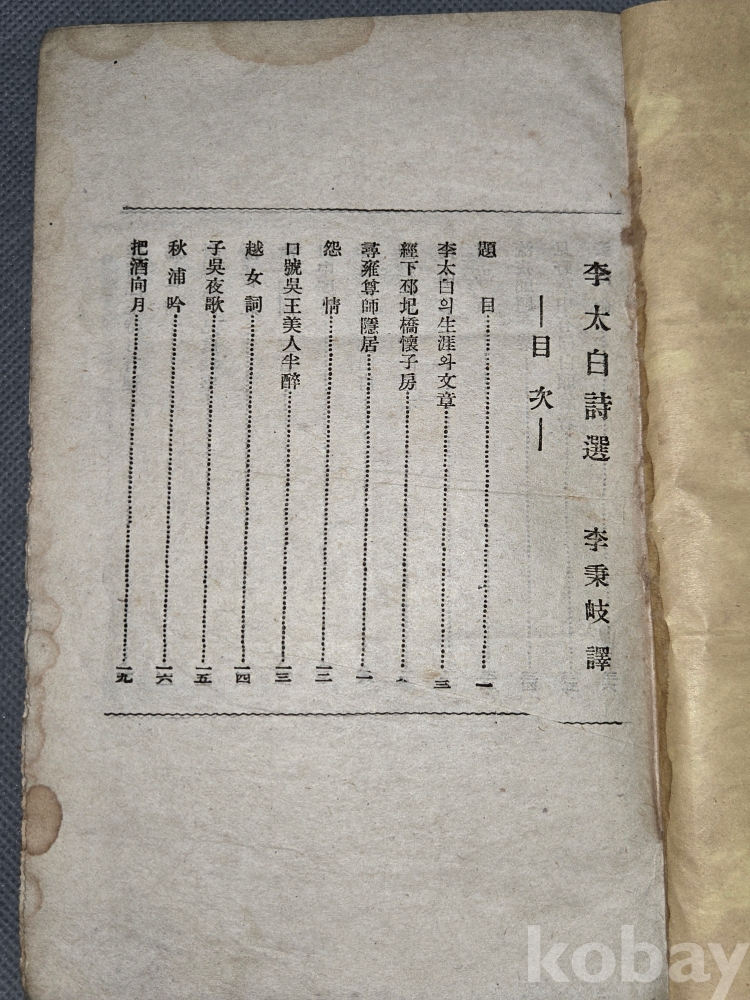 李太白詩選 李秉岐 譯
—目 次—
題 目……一
李太白의生涯와文章……三
經下邳圯橋懷子房……
尋雍尊師隱居……
怨 情……一二
口號吳王美人半醉……一三
越 女 詞……一四
子吳夜歌……一五
秋 浦 吟……一六
把酒向月……一九
kobay